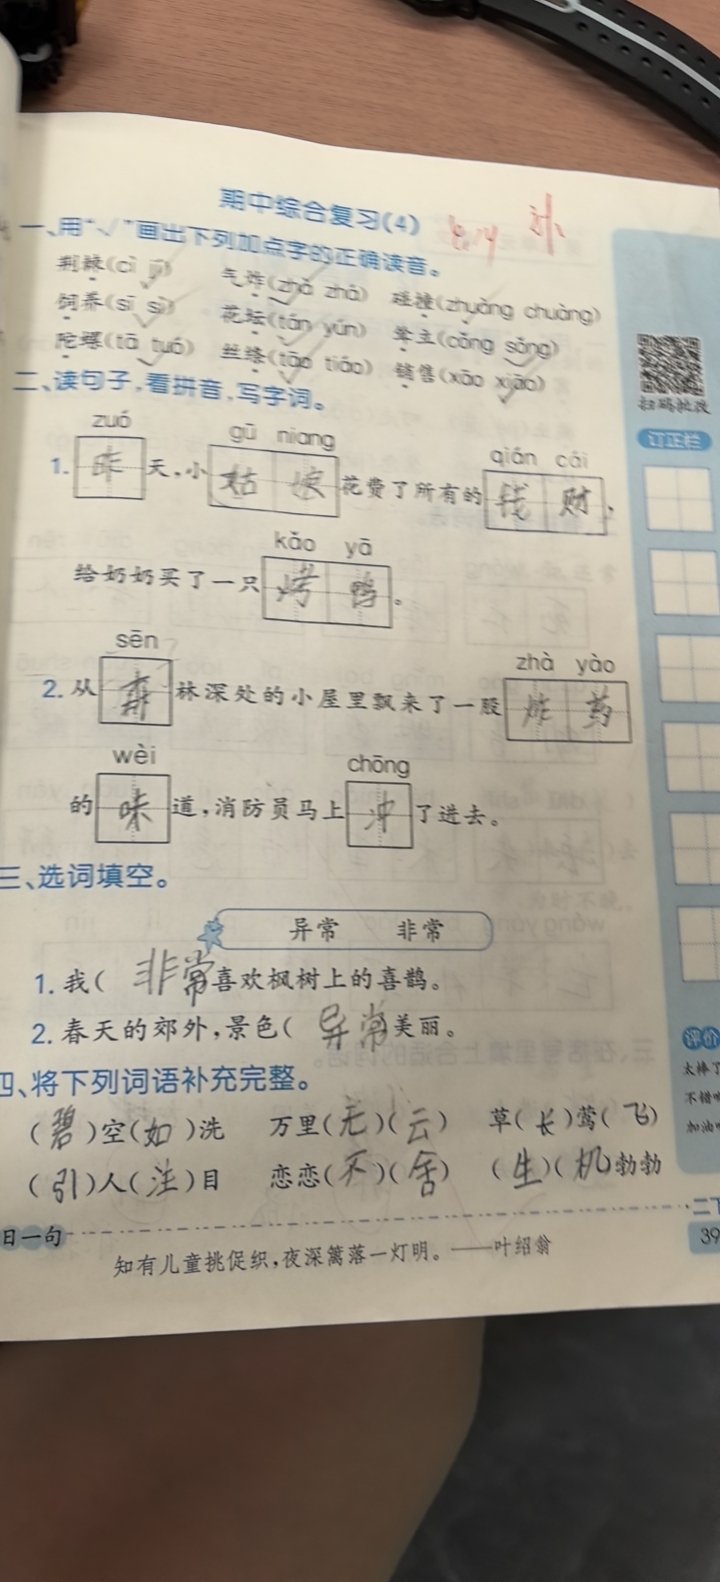 期中综合复习(4)
一、用“√”画出下列加点字的正确读音。
荆棘(cì jí) 气炸(zhà zhá) 碰撞(zhuàng chuàng)
饲养(sī sì) 花坛(tán yún) 耸立(cǒng sǒng)
陀螺(tā tuó) 丝绦(tāo tiáo) 销售(xāo xiāo)
二、读句子,看拼音,写字词。
zuó gū niang qián cái
1. 昨天,小姑娘花费了所有的钱财,
kǎo yā
给奶奶买了一只烤鸭。
sēn zhà yào
2. 从森林深处的小屋里飘来了一股炸药
wèi chōng
的味道,消防员马上冲了进去。
三、选词填空。
异常 非常
1. 我( 非常喜欢枫树上的喜鹊。
2. 春天的郊外,景色( 异常美丽。
四、将下列词语补充完整。
(碧)空(如)洗 万里(无)(云) 草(长)莺(飞)
(引)人(注)目 恋恋(不)(舍) (生)(机)勃勃
日一句
知有儿童挑促织,夜深篱落一灯明。——叶绍翁
扫码批改
订正栏
评价
太棒了
不错哦
加油
二下
39